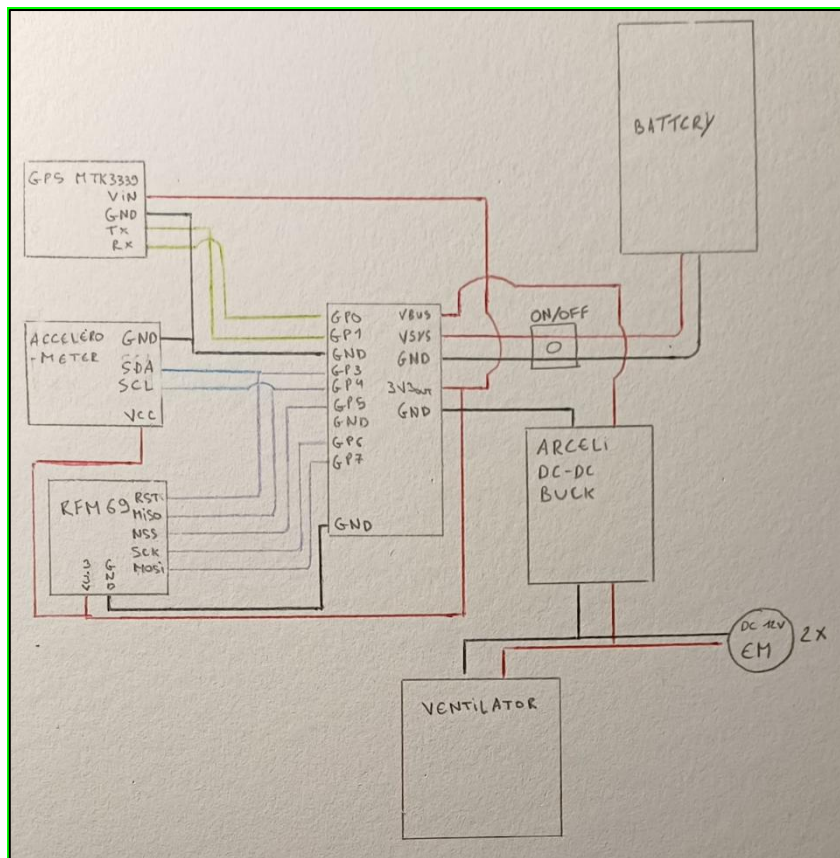 BATTERY
GPS MTK3339
VIN
GND
TX
RX
ACCELERO
-METER
GND
SDA
SCL
VCC
RFM69
RST
MISO
NSS
SCK
MOSI
3.3V
GND
GP0
GP1
GND
GP3
GP4
GP5
GND
GP6
GP7
GND
VBUS
VSYS
GND
3V3out
GND
ON/OFF
O
ARCELI
DC-DC
BUCK
DC 12V
EM
2X
VENTILATOR